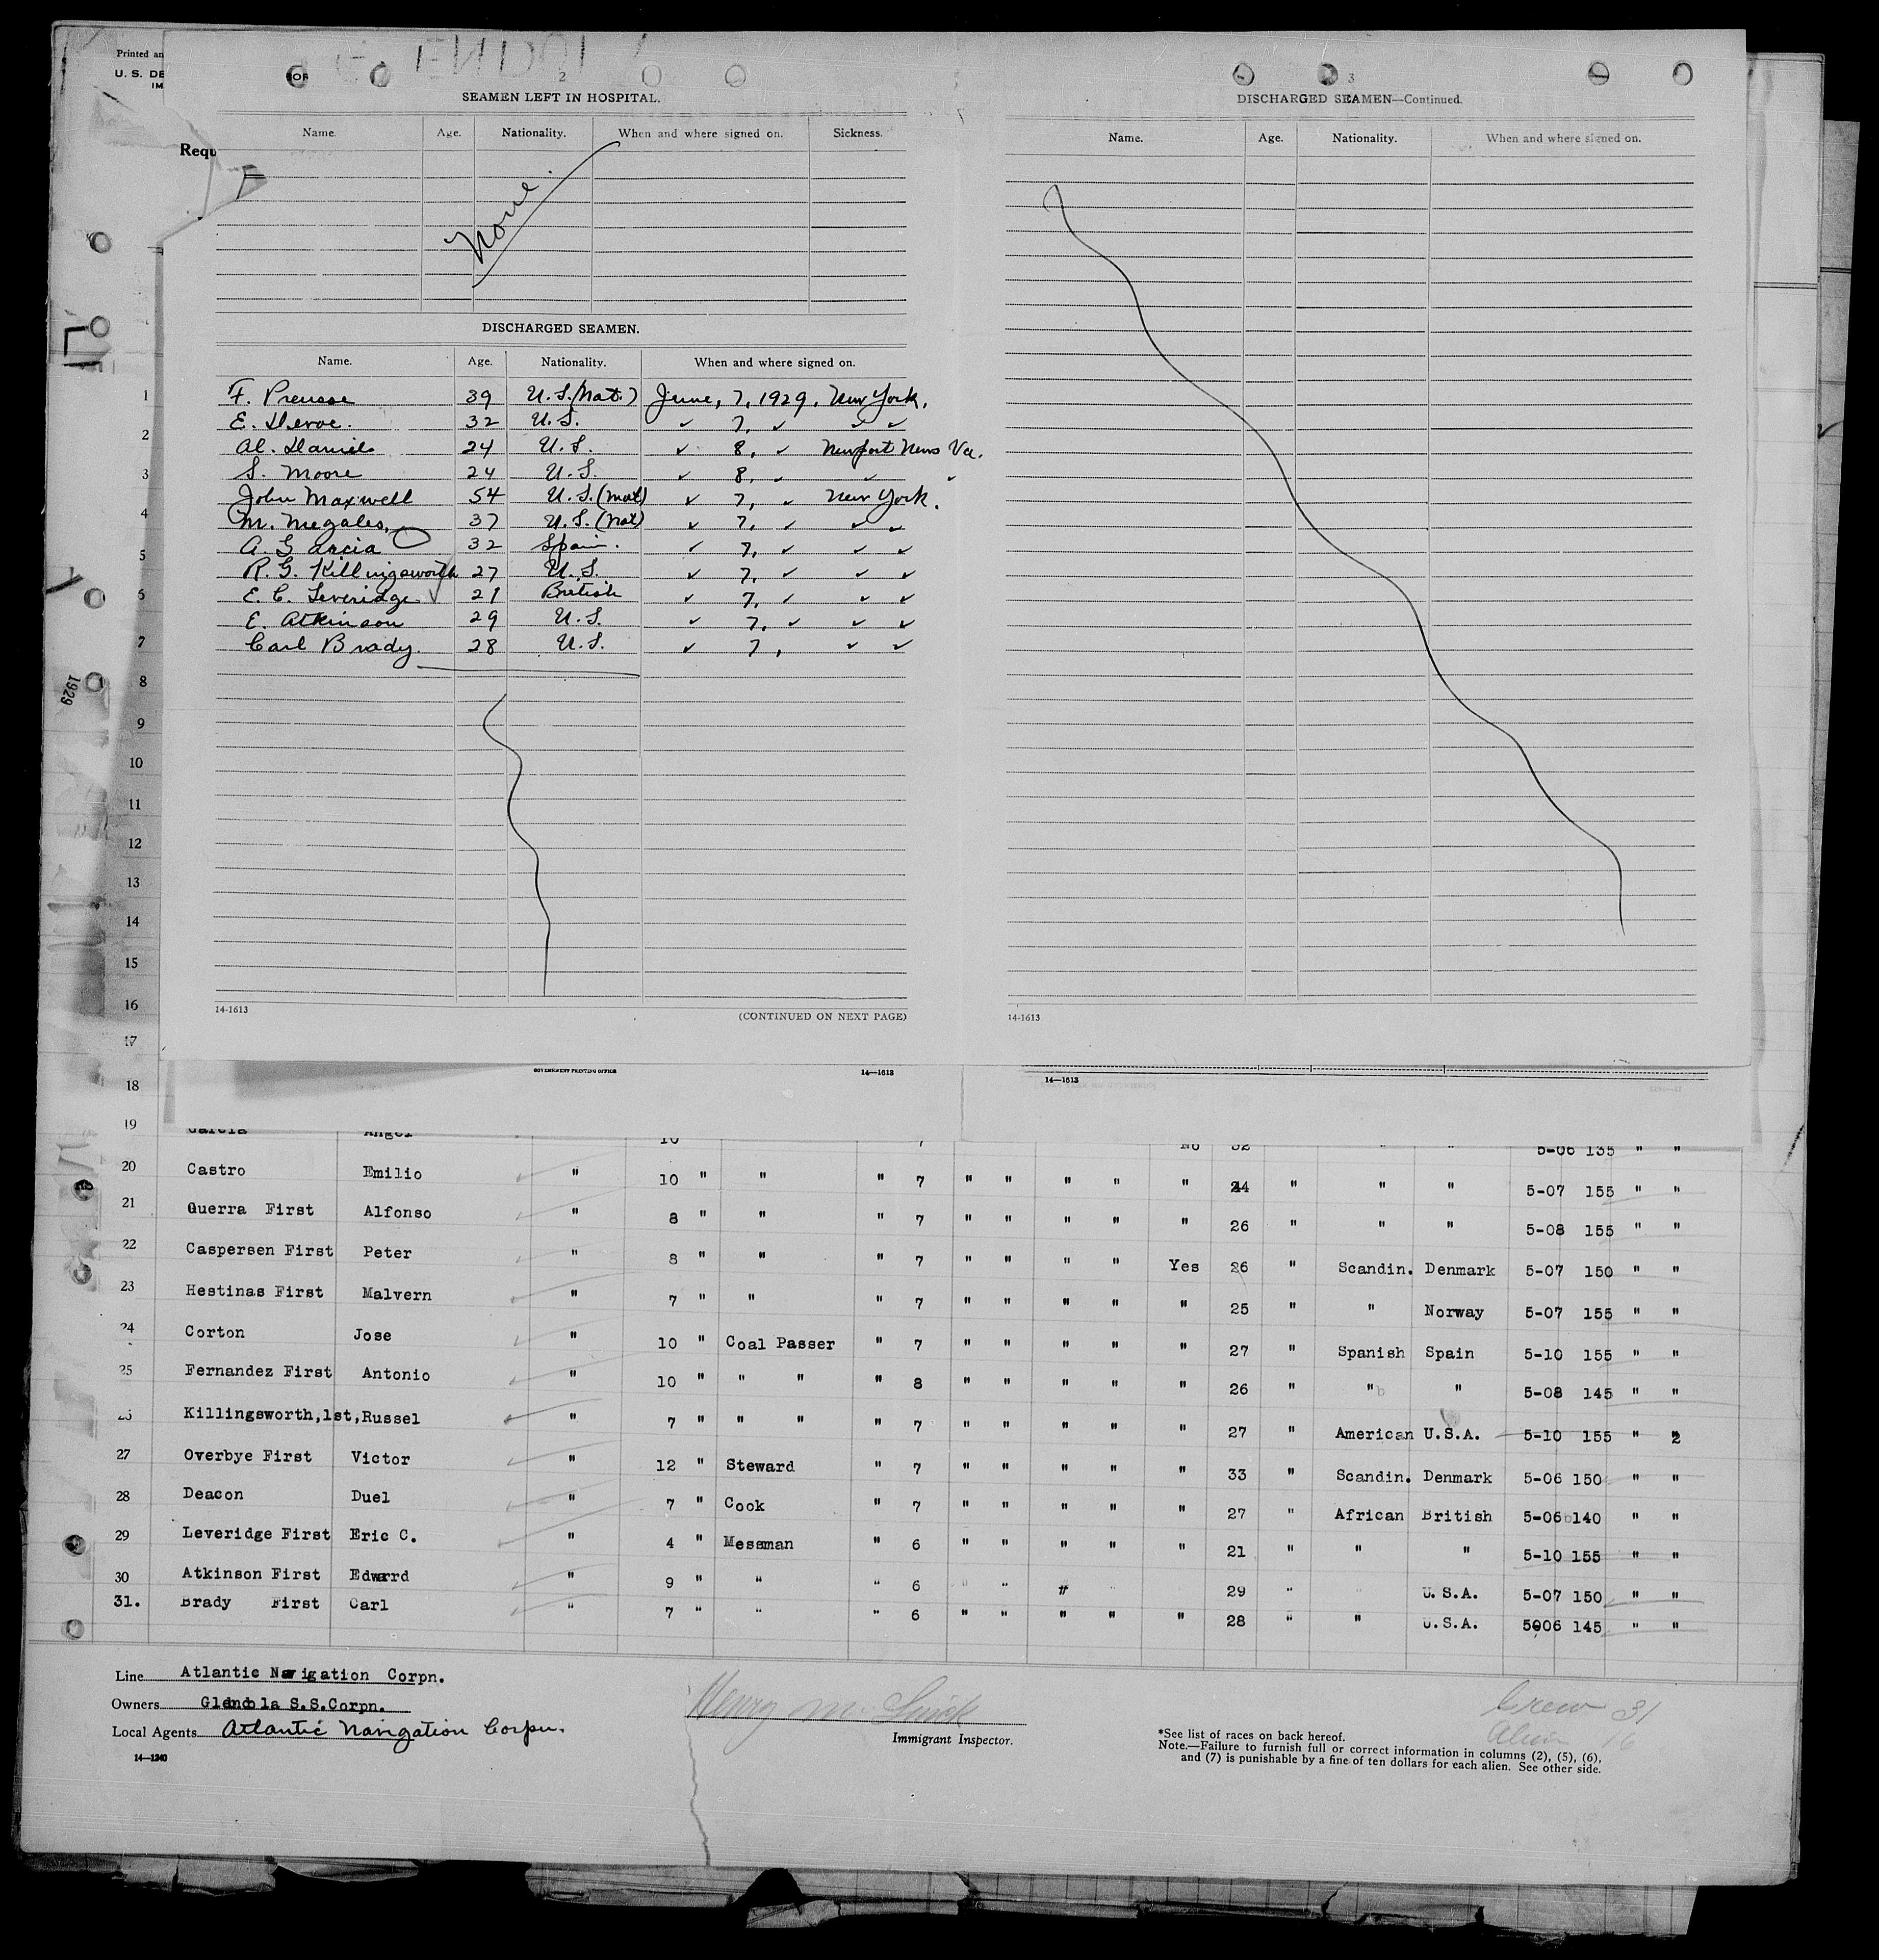 Printed an
U. S. DE
IM
OR
Requ
2
SEAMEN LEFT IN HOSPITAL.
Name. Age. Nationality. When and where signed on. Sickness.
None.
DISCHARGED SEAMEN.
Name. Age. Nationality. When and where signed on.
F. Preusse 39 U.S.(Nat.) June, 7, 1929, New York.
E. Deroe. 32 U.S. ✓ 7, ✓ ✓ ✓
Al. Daniels 24 U.S. ✓ 8, ✓ Newport News Va.
S. Moore 24 U.S. ✓ 8, ✓ ✓ ✓
John Maxwell 54 U.S.(nat) ✓ 7, ✓ New York.
M. Megales, 37 U.S.(nat) ✓ 7, ✓ ✓ ✓
A. Garcia 32 Spain. ✓ 7, ✓ ✓ ✓
R. G. Killingsworth 27 U.S. ✓ 7, ✓ ✓ ✓
E. C. Leveridge ✓ 21 British ✓ 7, ✓ ✓ ✓
E. Atkinson 29 U.S. ✓ 7, ✓ ✓ ✓
Carl Brady. 28 U.S. ✓ 7, ✓ ✓
14-1613 (CONTINUED ON NEXT PAGE)
3
DISCHARGED SEAMEN—Continued.
Name. Age. Nationality. When and where signed on.
14-1613
1
2
3
4
5
6
7
8
1929
9
10
11
12
13
14
15
16
17
18
GOVERNMENT PRINTING OFFICE 14—1613 14—1613
19 Garcia Angel 10 7 No 32 " " 5-06 135 " "
20 Castro Emilio " 10 " " " 7 " " " " " 24 " " " 5-07 155 " "
21 Guerra First Alfonso " 8 " " " 7 " " " " " 26 " " " 5-08 155 " "
22 Caspersen First Peter " 8 " " " 7 " " " " Yes 26 " Scandin. Denmark 5-07 150 " "
23 Hestinas First Malvern " 7 " " " 7 " " " " " 25 " " Norway 5-07 155 " "
24 Corton Jose " 10 " Coal Passer " 7 " " " " " 27 " Spanish Spain 5-10 155 " "
25 Fernandez First Antonio " 10 " " " " 8 " " " " " 26 " " " 5-08 145 " "
26 Killingsworth,1st,Russel " 7 " " " " 7 " " " " " 27 " American U.S.A. 5-10 155 " 2
27 Overbye First Victor " 12 " Steward " 7 " " " " " 33 " Scandin. Denmark 5-06 150 " "
28 Deacon Duel " 7 " Cook " 7 " " " " " 27 " African British 5-06 140 " "
29 Leveridge First Eric C. " 4 " Messman " 6 " " " " " 21 " " " 5-10 155 " "
30 Atkinson First Edward " 9 " " " 6 " " # " 29 " " U.S.A. 5-07 150 " "
31. Brady First Carl " 7 " " " 6 " " " " " 28 " " U.S.A. 5006 145 " "
Line Atlantic Navigation Corpn.
Owners Glendola S.S.Corpn.
Local Agents Atlantic Navigation Corpn.
14—1240
Henry M.
Immigrant Inspector.
Crew 31
Alien 16
*See list of races on back hereof.
Note.—Failure to furnish full or correct information in columns (2), (5), (6),
and (7) is punishable by a fine of ten dollars for each alien. See other side.